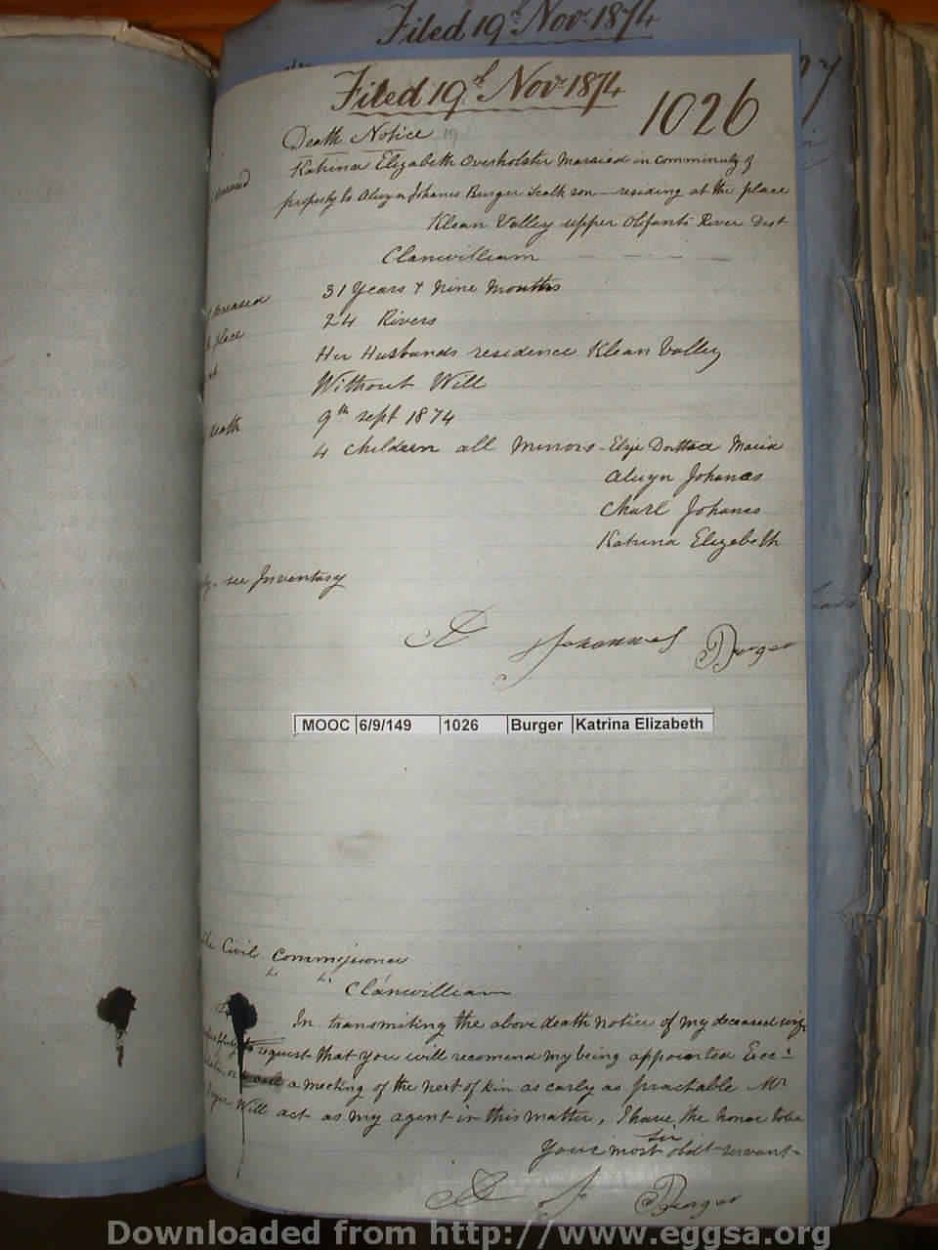 Filed 19th Nov. 1874
Filed 19th Nov. 1874
1026
Death Notice
Katrina Elizabeth Overholster Married in comminuty of
property to Alwyn Johanes Burger son residing at the place
Klean Valley upper Olifants River Dist
Clanwilliam
31 Years & Nine Months
24 Rivers
place
Her Husbands residence Klean Valley
Without Will
9th sept 1874
death
4 Children all Minors - Elsje Maria
Alwyn Johanes
Charl Johanes
Katrina Elizabeth
see Inventory
A Johannes Burger
MOOC 6/9/149 1026 Burger Katrina Elizabeth
the Civil Commissioner
Clanwilliam
In transmiting the above death notice of my deceased wife
request that you will recomend my being appointed
a meeting of the next of kin as early as practable Mr
Will act as my agent in this matter, I have the honor to be
Sir
Your most obdt servant
A J Burger
Downloaded from http://www.eggsa.org